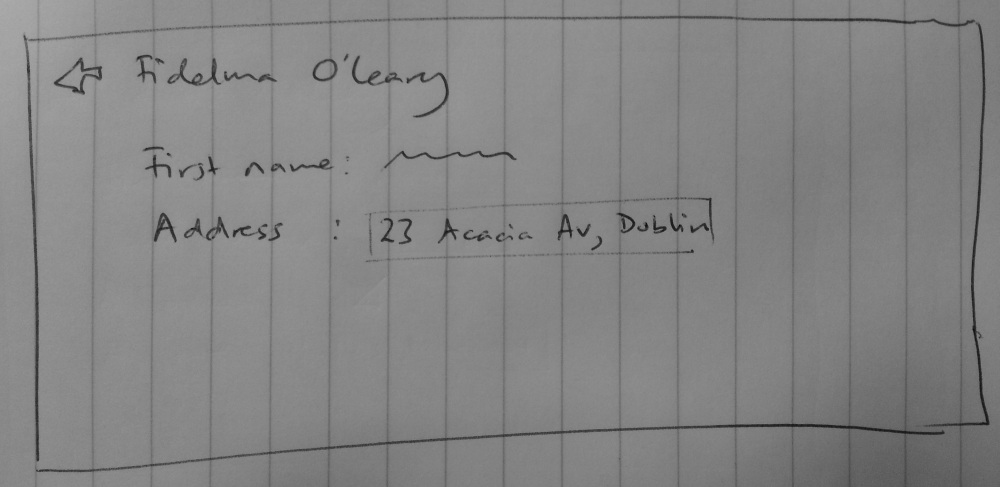 Fidelma O'Leary
First name:
Address : 23 Acacia Av, Dublin